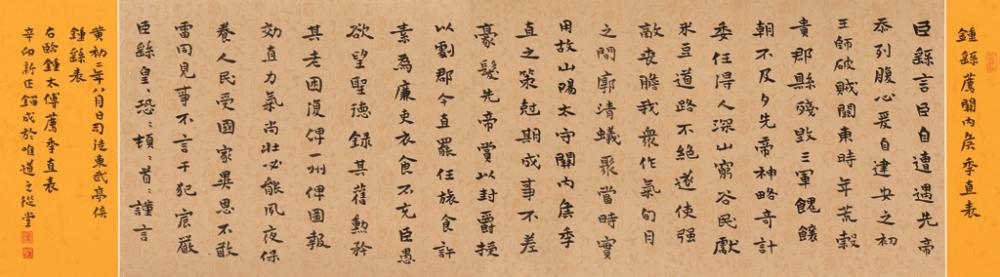 鍾繇薦關內侯季直表
臣繇言臣自遭遇先帝
忝列腹心爰自建安之初
王師破賊關東時年荒穀
貴郡縣殘毀三軍餽饟
朝不及夕先帝神略奇計
委任得人深山窮谷民獻
米豆道路不絕遂使強
敵喪膽我衆作氣旬月
之間廓清蟻聚當時實
用故山陽太守關內侯季
直之策尅期成事不差
豪髮先帝賞以封爵授
以劇郡今直罷任旅食許
素為廉吏衣食不充臣愚
欲望聖德錄其舊勳矜
其老困復俾一州俾圖報
效直力氣尚壯必能夙夜保
養人民受國家異恩不敢
雷同見事不言干犯宸嚴
臣繇皇〻恐〻頓〻首〻謹言
黃初二年八月日司徒東武亭侯
鍾繇表
右臨鍾太傅薦季直表
辛卯新正錙成於唯道之從堂